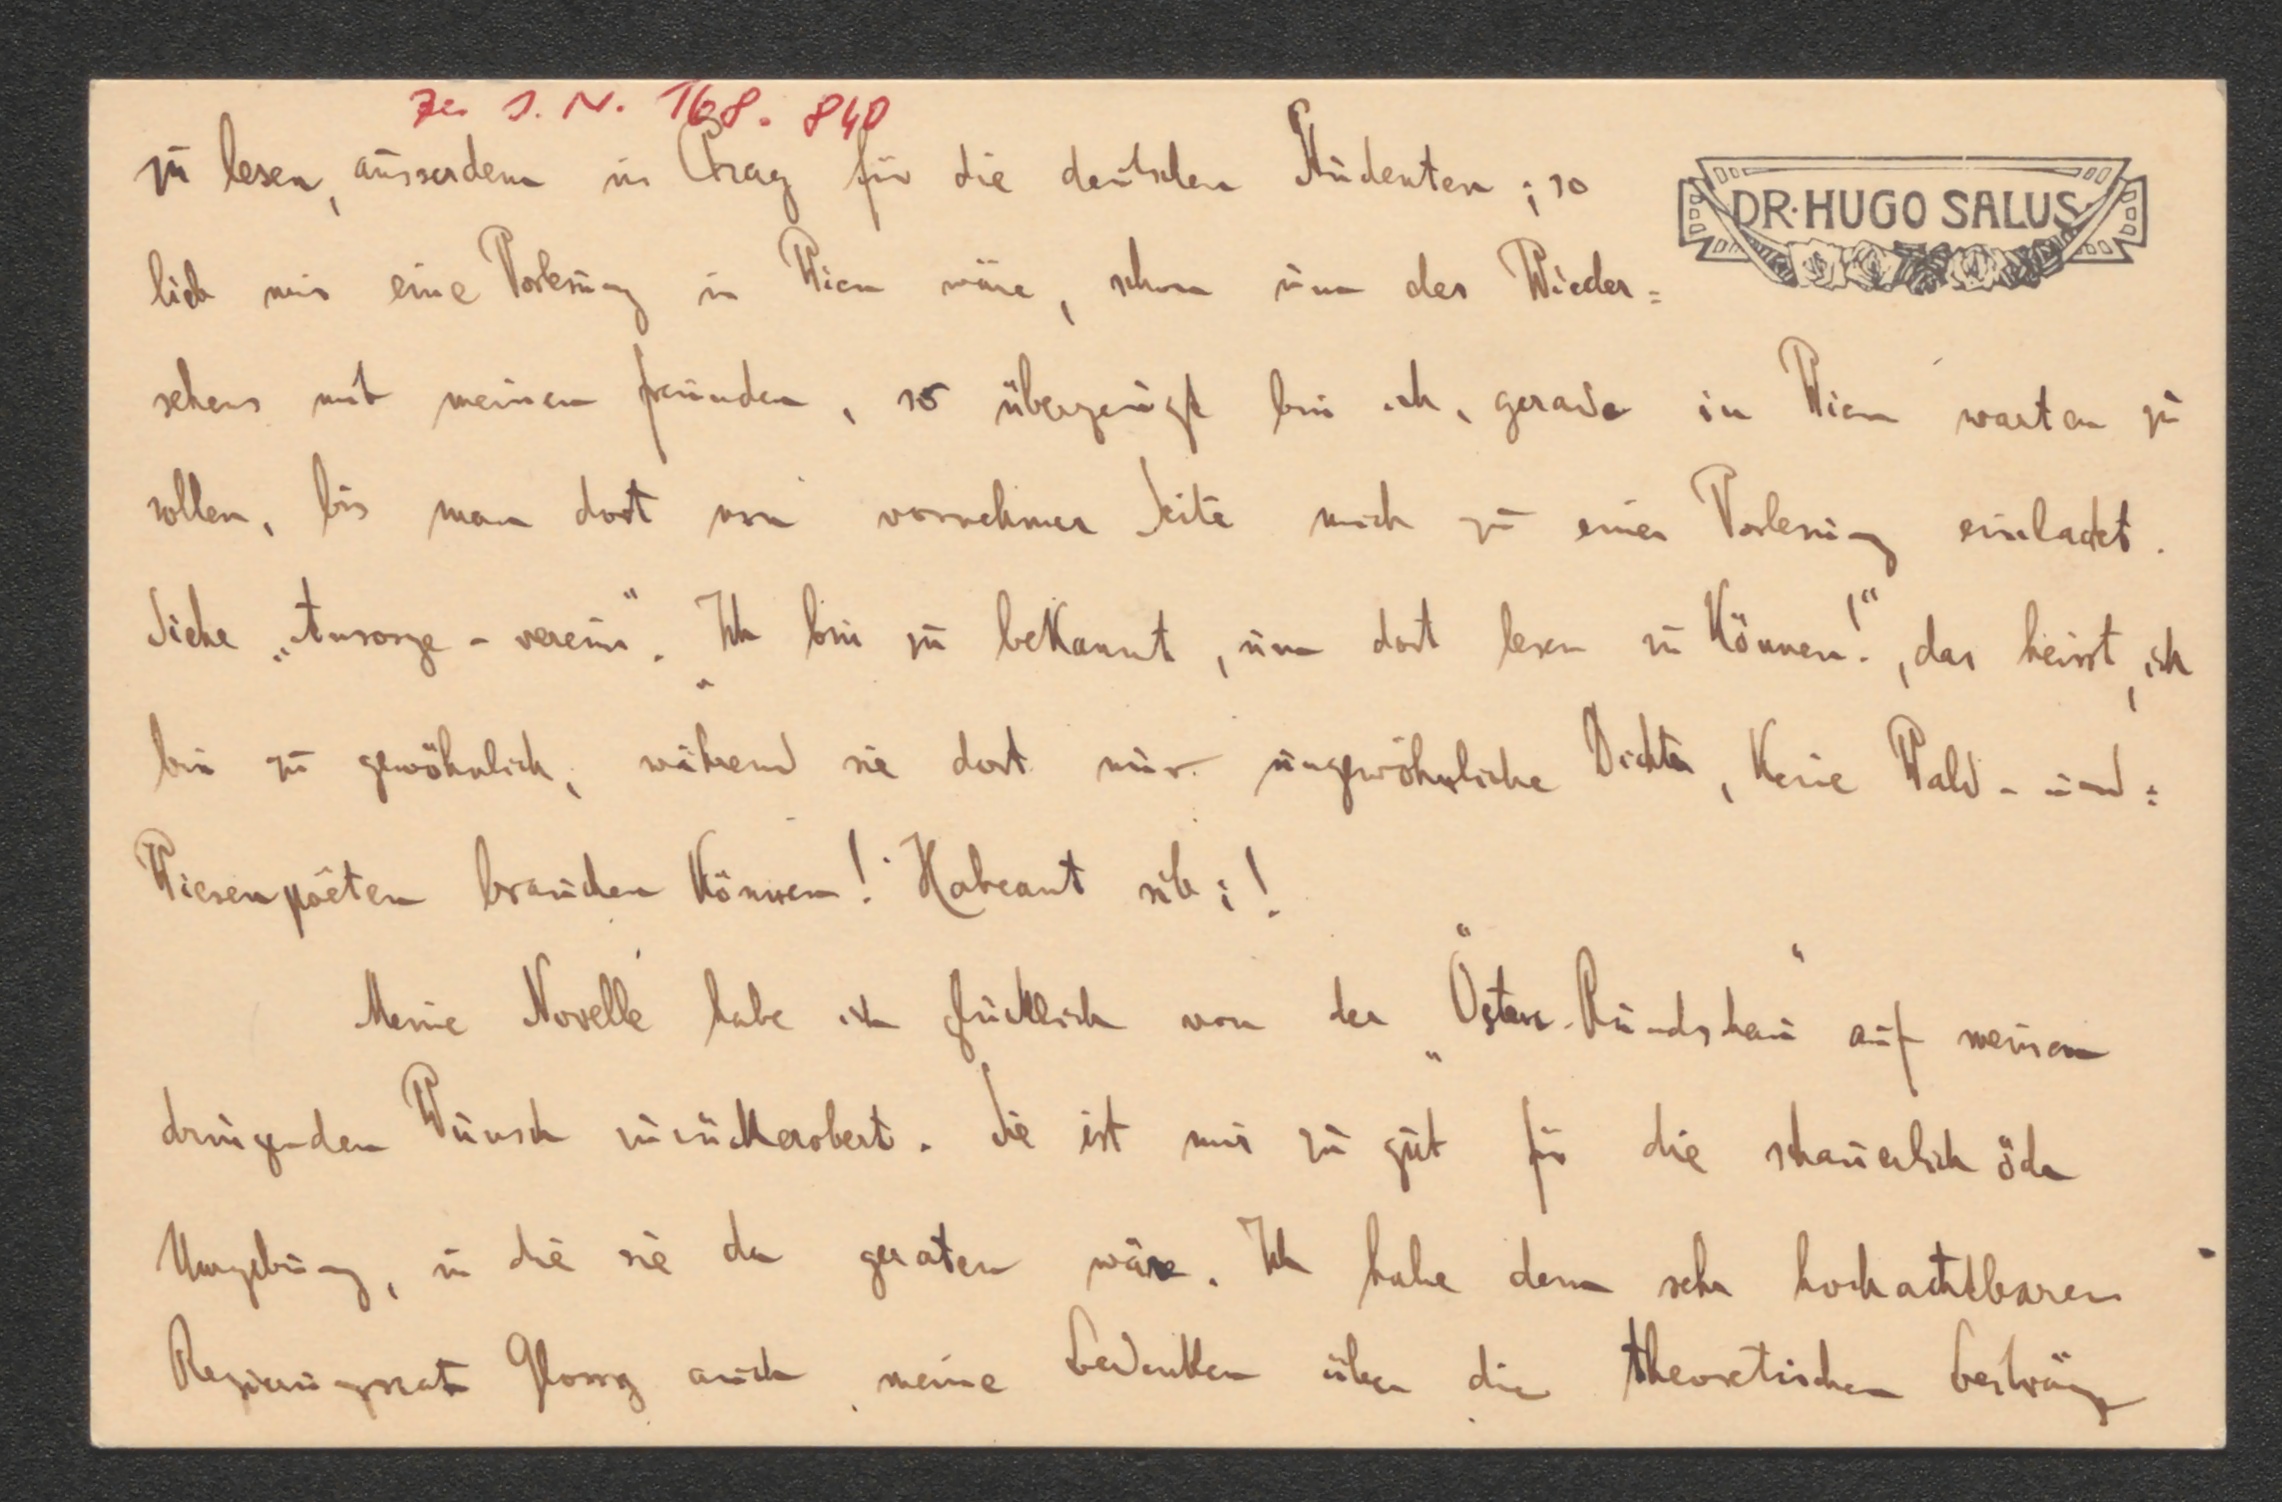 zu I. N. 168.840
zu lesen, ausserdem in Prag für die deutschen Studenten; so
DR. HUGO SALUS
lieb mir eine Vorlesung in Wien wäre, schon um des Wieder=
sehens mit meinen Freunden, so überzeugt bin ich, gerade in Wien warten zu
sollen, bis man dort von vornehmer Seite mich zu einer Vorlesung einladet.
Siehe „Ansorge-verein“. „Ich bin zu bekannt, um dort lesen zu können!“, das heisst, ich
bin zu gewöhnlich, während sie dort nur ungewöhnliche Dichter, keine Wald- und=
Wiesenpoëten brauchen können! Habeant sibi!
Meine Novelle habe ich glücklich von der „Österr. Rundschau“ auf meinen
dringenden Wunsch zurückerobert. Sie ist mir zu gut für die schauerlich öde
Umgebung, in die sie da geraten wäre. Ich habe dem sehr hochachtbaren
Regierungsrat Glossy auch meine Bedenken über die theoretischen Beiträge